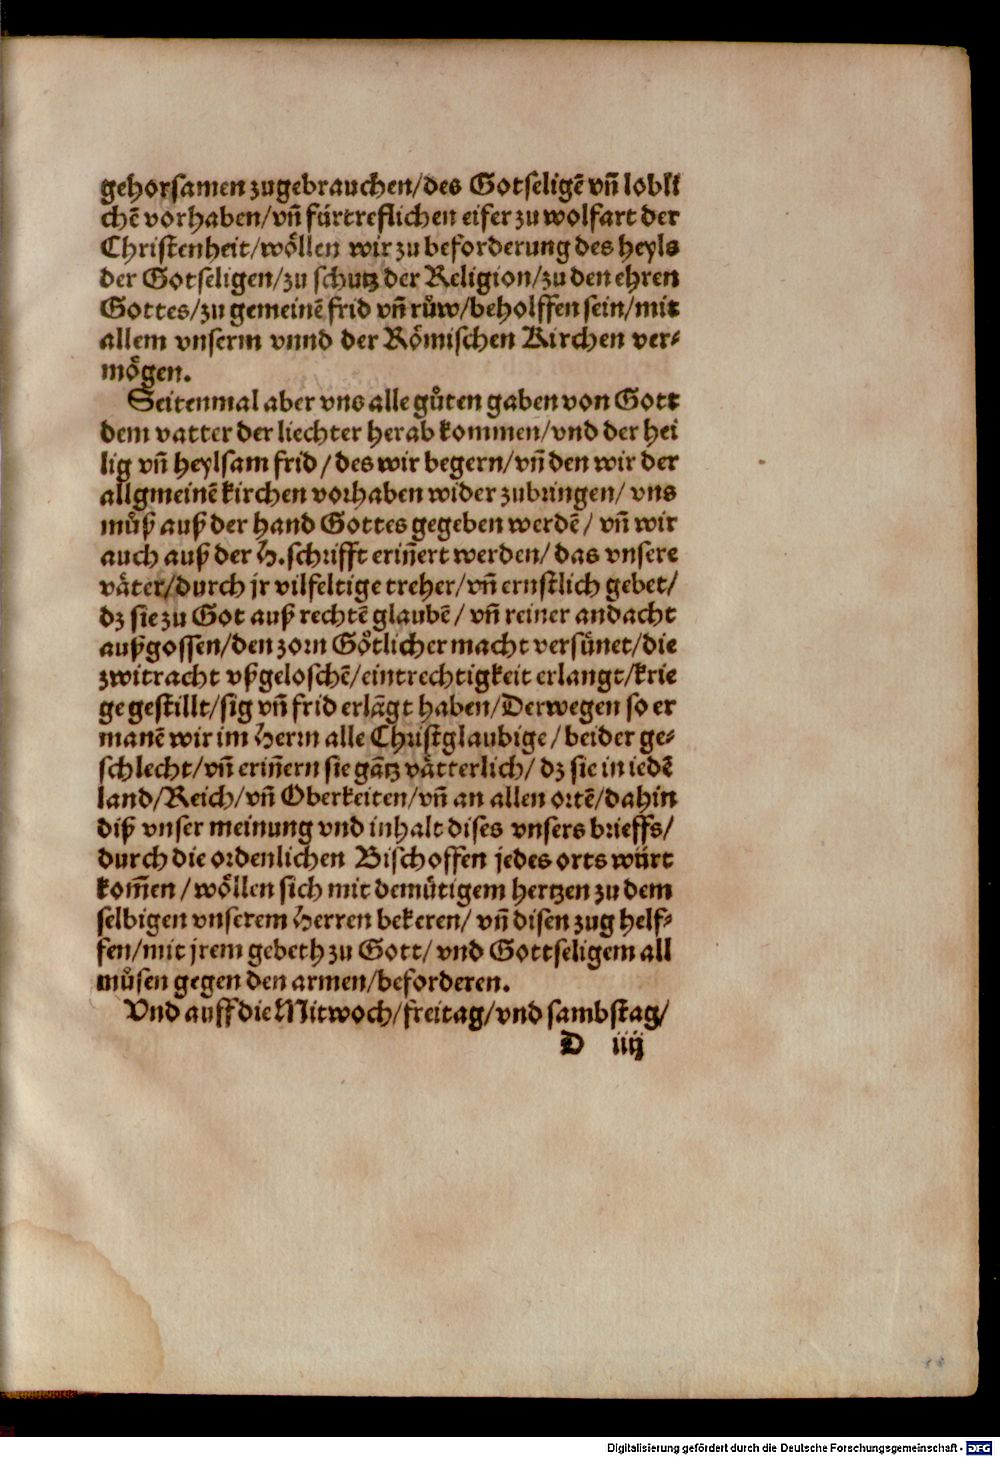 gehorsamen zugebrauchen/des Gotseligē vñ lobli
chē vorhaben/vñ fürtreflichen eifer zu wolfart der
Christenheit/wöllen wir zu beforderung des heyls
der Gotseligen/zu schutz der Religion/zu den ehren
Gottes/zu gemeinē frid vñ růw/beholffen sein/mit
allem vnserm vnnd der Römischen Kirchen ver-
mögen.
Seitenmal aber vns alle gůten gaben von Gott
dem vatter der liechter herab kommen/vnd der hei
lig vñ heylsam frid/des wir begern/vñ den wir der
allgmeinē kirchen vorhaben wider zubringen/vns
můß auß der hand Gottes gegeben werdē/vñ wir
auch auß der H. schrifft eriñert werden/das vnsere
väter/durch jr vilfeltige treher/vñ ernstlich gebet/
dz sie zu Got auß rechtē glaubē/vñ reiner andacht
außgossen/den zorn Götlicher macht versünet/die
zwitracht vßgeloschē/eintrechtigkeit erlangt/krie
ge gestillt/sig vñ frid erlāgt haben/Derwegen so er
manē wir im Herrn alle Christglaubige/beider ge-
schlecht/vñ eriñern sie gātz vätterlich/dz sie in iedē
land/Reich/vñ Oberkeiten/vñ an allen ortē/dahin
diß vnser meinung vnd inhalt dises vnsers brieffs/
durch die ordenlichen Bischoffen jedes orts würt
kom̄en/wöllen sich mit demütigem hertzen zu dem
selbigen vnserem Herren bekeren/vñ disen zug helf-
fen/mit jrem gebeth zu Gott/vnd Gottseligem all
můsen gegen den armen/beforderen.
Vnd auff die Mitwoch/freitag/vnd sambstag/
D iiij
Digitalisierung gefördert durch die Deutsche Forschungsgemeinschaft - DFG